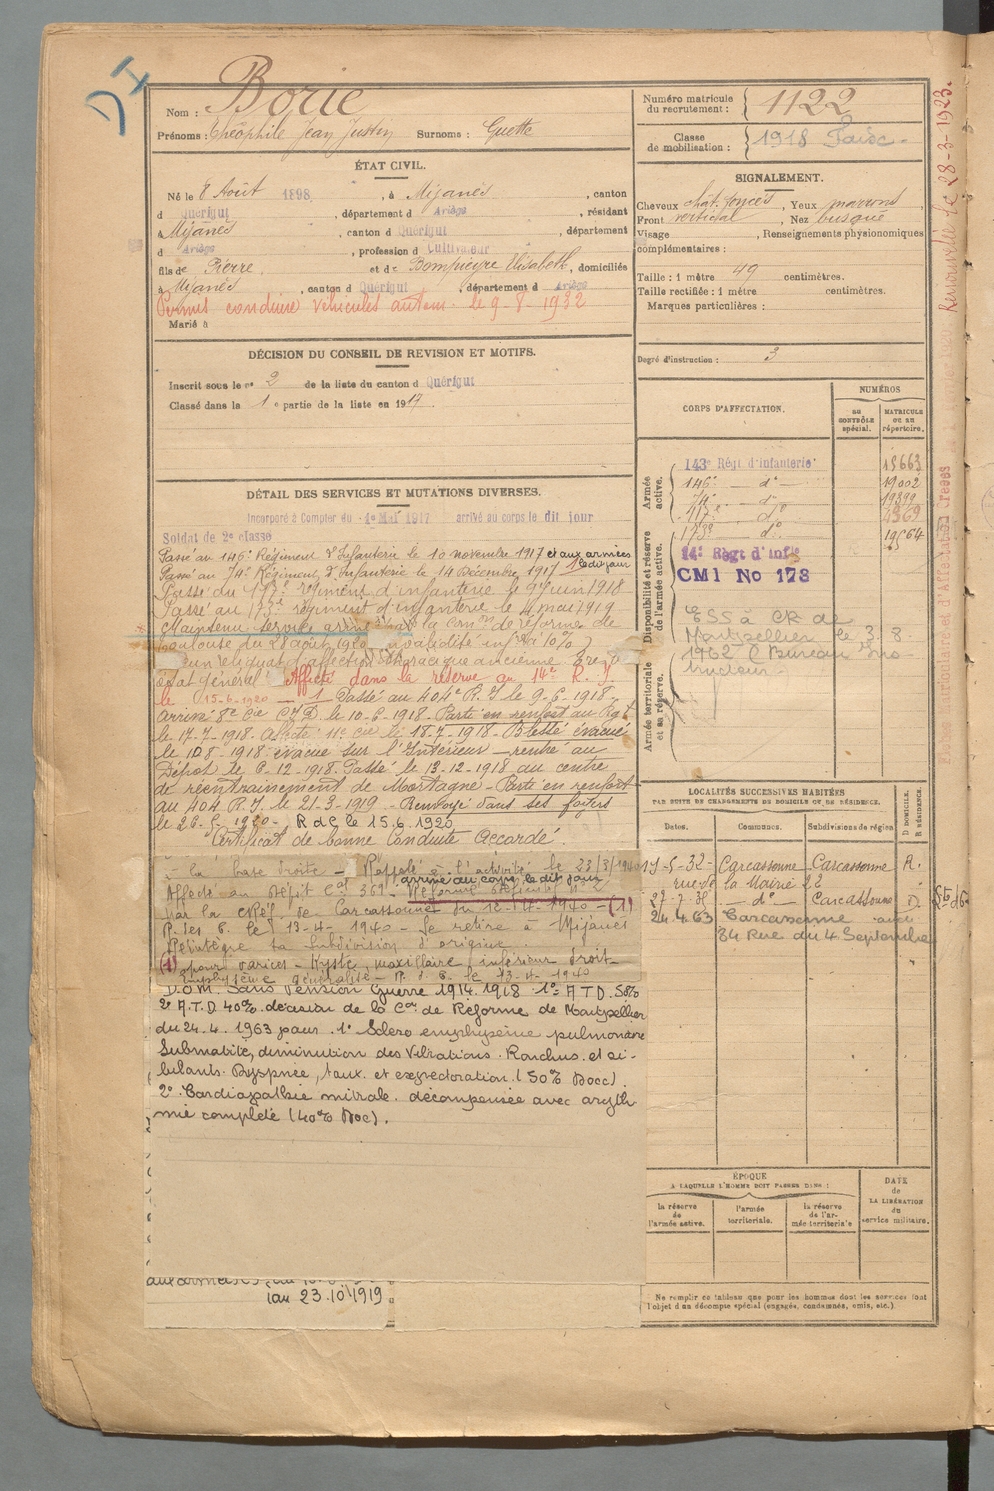 DI
Nom : Borie
Prénoms : Théophile Jean Justin Surnoms : Guette
ÉTAT CIVIL.
Né le 8 Août 1898, à Mijanès, canton
d Quérigut, département d Ariège, résidant
à Mijanès, canton d Quérigut, département
d Ariège, profession d Cultivateur
fils de Pierre, et de Bompieyre Elisabeth, domiciliés
à Mijanès, canton d Quérigut, département d Ariège
Permis conduire véhicules autom. le 9-8-1932
Marié à
DÉCISION DU CONSEIL DE REVISION ET MOTIFS.
Inscrit sous le n° 2 de la liste du canton d Quérigut
Classé dans la 1 e partie de la liste en 1917
DÉTAIL DES SERVICES ET MUTATIONS DIVERSES.
Incorporé à Compter du 1e Mai 1917 arrivé au corps le dit jour
Soldat de 2e classe
Passé au 146e Régiment d'Infanterie le 10 novembre 1917 et aux armées
le dit jour
Passé au 74e Régiment d'Infanterie le 14 Décembre 1917
Passé du 117e régiment d'infanterie le 9 Juin 1918
Passé au 173e régiment d'infanterie le 4 mai 1919
Maintenu service armé par la Com on de réforme de
Toulouse du 28 août 1920 invalidité infre à 10%
un reliquat affection thoracique ancienne
état général. Affecté dans la réserve au 14e R. I.
le 15-6-1920 Passé au 404e R I le 9-6-1918-
arrivé 8e Cie C.I.D. le 10-6-1918- Parti en renfort au Rgt
le 17-7-1918. Affecté 11e Cie le 18-7-1918- Blessé évacué
le 10 8 1918 évacué sur l'Intérieur - rentré au
Dépôt le 6-12-1918. Passé le 13-12-1918 au centre
de réentrainement de Mortagne - Parti en renfort
au 404 R. I. le 21-3-1919 - Renvoyé dans ses foyers
le 26-5-1920-, R d C le 15.6.1920
Certificat de bonne Conduite Accordé
à la base droite - Rappelé à l'activité le 23/3/1940
arrivé au corps le dit jour
Affecté au Dépôt Cal 361 - Réformé définitif n° 2
par la CRéf. de Carcassonne du 12-4-1940 - (1)
R. ses F. le 13-4-1940 - Se retire à Mijanès
Réintègre sa subdivision d'origine
(1) pour varices - Kyste maxillaire inférieur droit
emphysème généralisé - R. d. C. le 13-4-1940
D.O.M. Sans Pension Guerre 1914.1918 1° A T D. 50%
2° A.T.D 40% décision de la Con de Réforme de Montpellier
du 24.4.1963 pour 1° Scléro emphysème pulmonaire
Submatité, diminution des Vibrations. Ronchus et si-
bilants. Dyspnée, toux et expectoration. (50% Docc).
2° Cardiopathie mitrale décompensée avec aryth-
mie complète (40% Doc).
aux armées
au 23.10.1919
Numéro matricule
du recrutement : 1122
Classe
de mobilisation : 1918
SIGNALEMENT.
Cheveux chât. foncés, Yeux marrons,
Front vertical, Nez busqué
Visage , Renseignements physionomiques
complémentaires :
Taille : 1 mètre 49 centimètres.
Taille rectifiée : 1 mètre centimètres.
Marques particulières :
Degré d'instruction : 3
CORPS D'AFFECTATION.
NUMÉROS
au
CONTRÔLE
spécial.
MATRICULE
ou au
répertoire.
Armée
active.
143e Régt d'infanterie 15663
146e - do - 19002
74e - do 19399
117e do 4369
173e do 19564
Disponibilité et réserve
de l'armée active.
14e Régt d'Infie
CMI No 178
ESS à CR de
Montpellier le 3.8.
1962
Armée territoriale
et sa réserve.
LOCALITÉS SUCCESSIVES HABITÉES
PAR SUITE DE CHANGEMENTS DE DOMICILE OU DE RÉSIDENCE.
Dates.
Communes.
Subdivisions de région
D DOMICILE.
R RÉSIDENCE.
15-5-32- Carcassonne Carcassonne R.
rue de la Mairie 22
27-7-35 - do - Carcassonne D.
24.4.63 Carcassonne aude
84 Rue du 4 Septembre
ÉPOQUE
A LAQUELLE L'HOMME DOIT PASSER DANS :
la réserve
de
l'armée active.
l'armée
territoriale.
la réserve
de l'ar-
mée territoriale
DATE
de
LA LIBÉRATION
du
service militaire.
Ne remplir ce tableau que pour les hommes dont les services font
l'objet d'un décompte spécial (engagés, condamnés, omis, etc.).
28-3-1923.